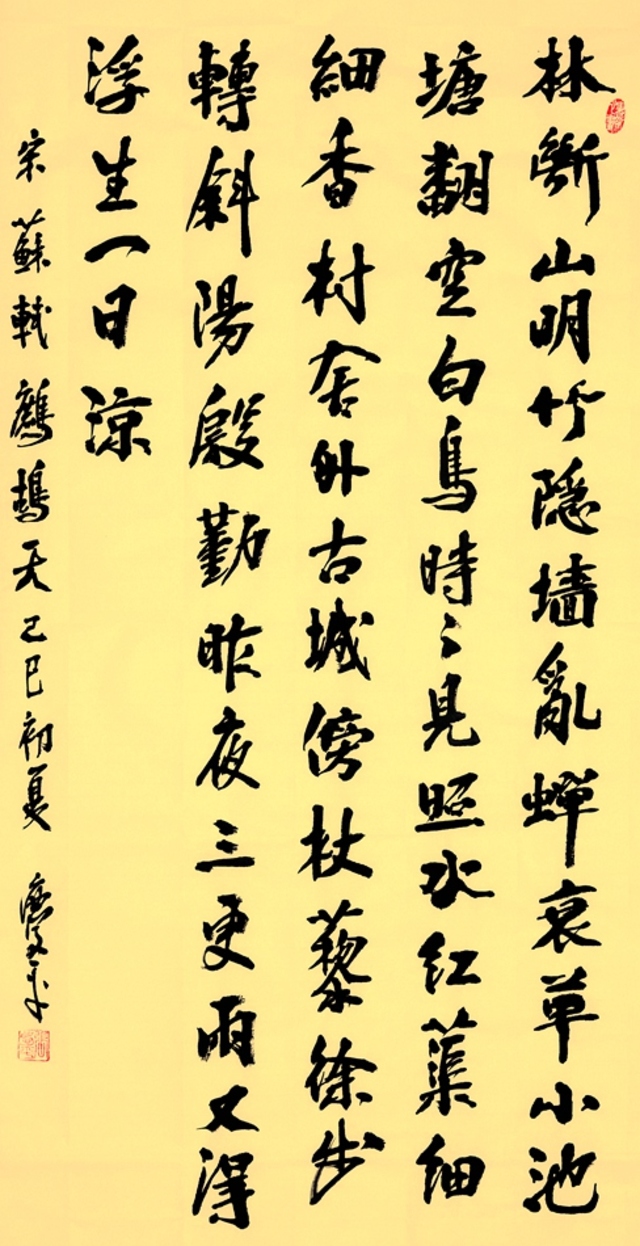 林斷山明竹隱墻亂蟬衰草小池
塘翻空白鳥時〻見照水紅蕖細
細香村舍外古城傍杖藜徐步
轉斜陽殷勤昨夜三更雨又得
浮生一日涼
宋蘇軾鷓鴣天己巳初夏